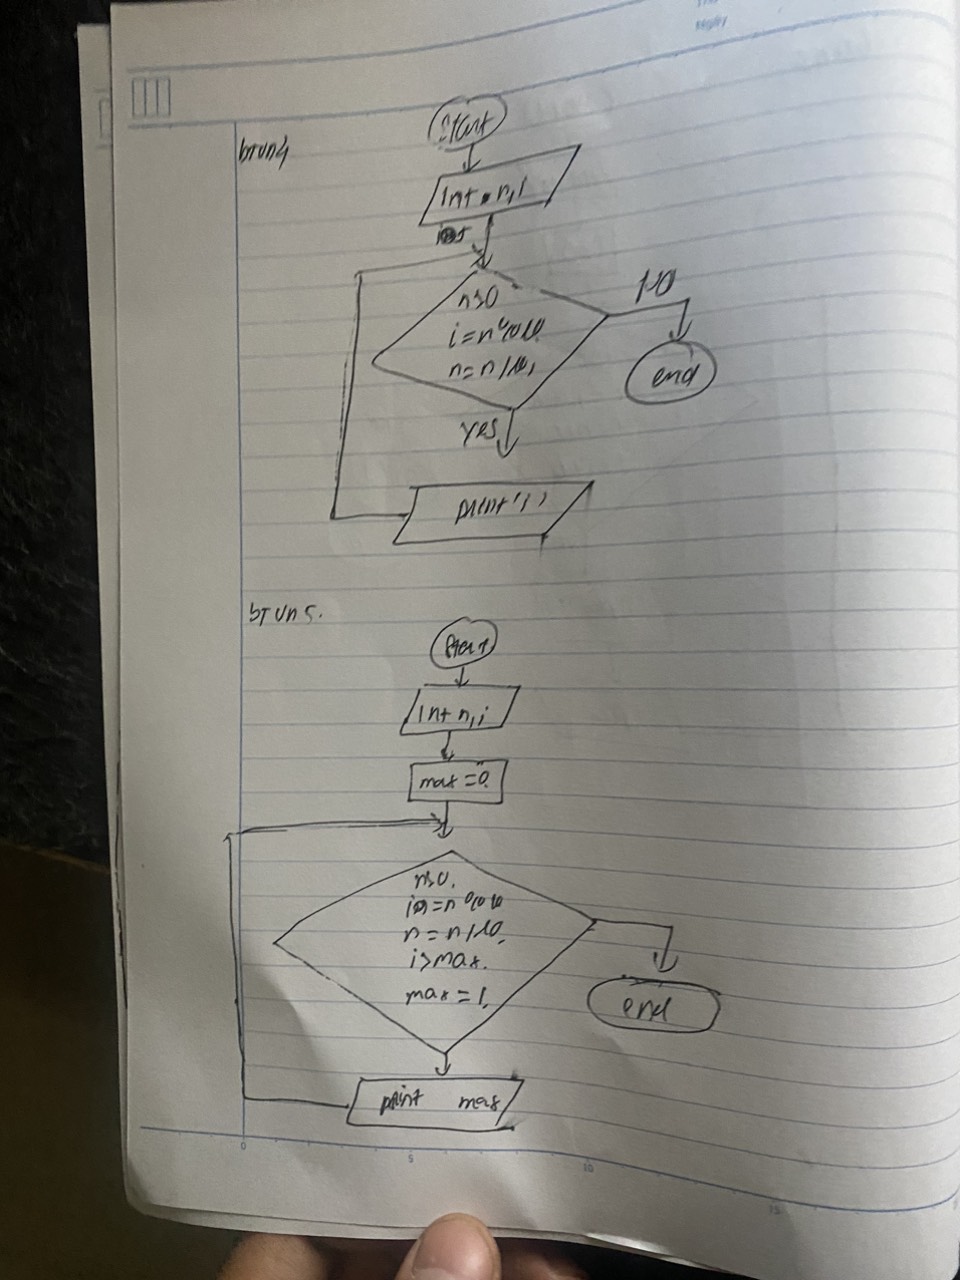 btvn4
Start
int n,i
n>0
NO
i=n%10
n=n/10,
end
yes
print'i'
btvn5.
Start
int n,i
max=0.
n>0.
i=n%10
n=n/10.
i>max.
max=i.
end
print max
0
5
10
15